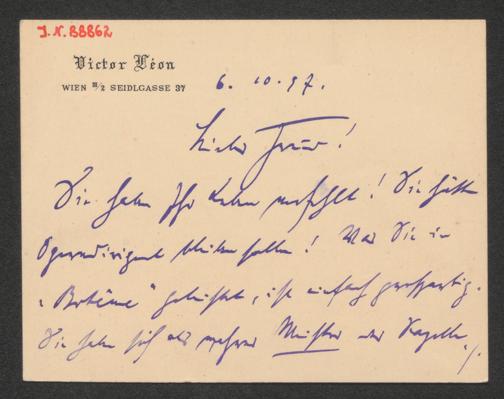 J.N. 88862
Victor Léon
WIEN III/2 SEIDLGASSE 37
6. 10. 97.
Lieber Freund!
Sie haben Ihr Leben verfehlt! Sie hätten
Operndirigent bleiben sollen! Was Sie in
„Bohème" geleistet, ist einfach großartig.
Sie haben sich als wahrer Meister der Kapelle